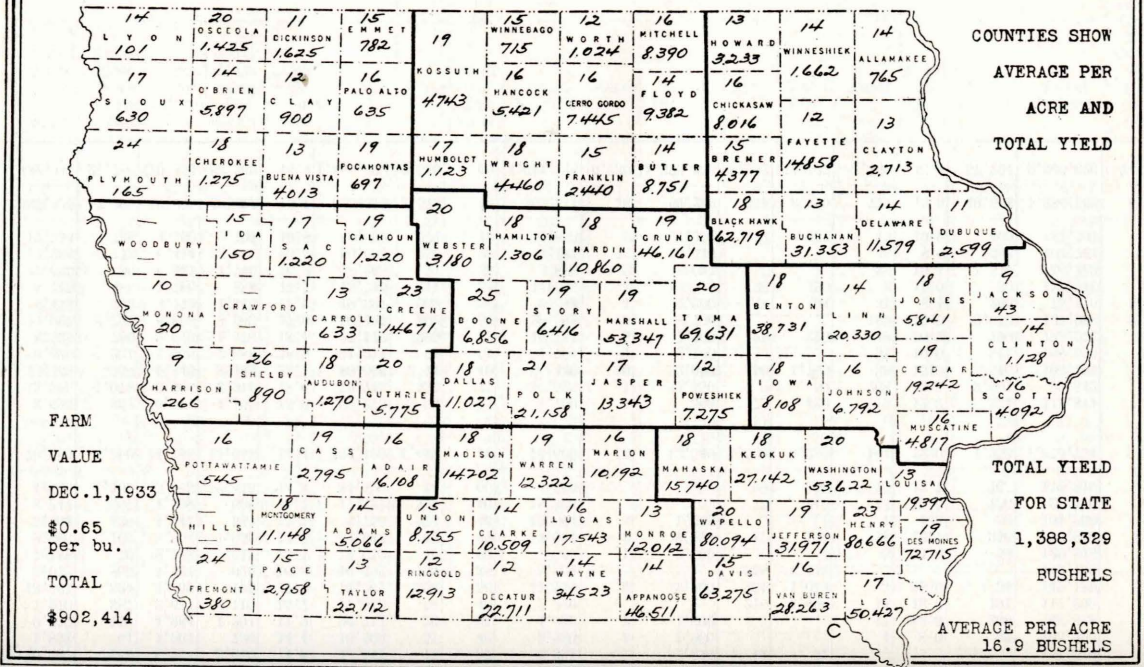 COUNTIES SHOW
AVERAGE PER
ACRE AND
TOTAL YIELD
14
LYON
101
20
OSCEOLA
1.425
11
DICKINSON
1.625
15
EMMET
782
19
KOSSUTH
4743
15
WINNEBAGO
715
12
WORTH
1.024
16
MITCHELL
8.390
13
HOWARD
3,233
14
WINNESHIEK
1.662
14
ALLAMAKEE
765
17
SIOUX
630
14
O'BRIEN
5,897
12
CLAY
900
16
PALO ALTO
635
16
HANCOCK
5.421
16
CERRO GORDO
7.445
14
FLOYD
9.382
16
CHICKASAW
8.016
12
FAYETTE
14.858
13
CLAYTON
2,713
24
PLYMOUTH
165
18
CHEROKEE
1.275
13
BUENA VISTA
4.013
19
POCAHONTAS
697
17
HUMBOLDT
1.123
18
WRIGHT
4.460
15
FRANKLIN
2.440
14
BUTLER
8,751
15
BREMER
4.377
—
WOODBURY
—
15
IDA
150
17
SAC
1.220
19
CALHOUN
1.220
20
WEBSTER
3,180
18
HAMILTON
1.306
18
HARDIN
10,860
19
GRUNDY
46,161
18
BLACK HAWK
62.719
13
BUCHANAN
31.353
14
DELAWARE
11.579
11
DUBUQUE
2,599
10
MONONA
20
—
CRAWFORD
—
13
CARROLL
633
23
GREENE
14.671
25
BOONE
6,856
19
STORY
6416
19
MARSHALL
53,347
20
TAMA
69.631
18
BENTON
38,731
14
LINN
20.330
18
JONES
5,841
9
JACKSON
43
9
HARRISON
266
26
SHELBY
890
18
AUDUBON
1.270
20
GUTHRIE
5.775
18
DALLAS
11.027
21
POLK
21,158
17
JASPER
13.343
12
POWESHIEK
7.275
18
IOWA
8,108
16
JOHNSON
6.792
19
CEDAR
19242
14
CLINTON
1,128
76
SCOTT
4.092
16
MUSCATINE
4.817
16
POTTAWATTAMIE
545
19
CASS
2,795
16
ADAIR
16,108
18
MADISON
14,702
19
WARREN
12.322
16
MARION
10,192
18
MAHASKA
15.740
18
KEOKUK
27.142
20
WASHINGTON
53,622
13
LOUISA
19.397
—
MILLS
—
18
MONTGOMERY
11.148
14
ADAMS
5.066
15
UNION
8.755
14
CLARKE
10.509
16
LUCAS
17.543
13
MONROE
12.012
20
WAPELLO
80,094
19
JEFFERSON
31.971
23
HENRY
80.666
19
DES MOINES
72.715
24
FREMONT
380
15
PAGE
2,958
13
TAYLOR
22,112
12
RINGGOLD
12.913
12
DECATUR
22.711
14
WAYNE
34.523
14
APPANOOSE
46.511
15
DAVIS
63,275
16
VAN BUREN
28.263
17
LEE
50.427
C
FARM
VALUE
DEC.1,1933
$0.65
per bu.
TOTAL
$902,414
TOTAL YIELD
FOR STATE
1,388,329
BUSHELS
AVERAGE PER ACRE
16.9 BUSHELS